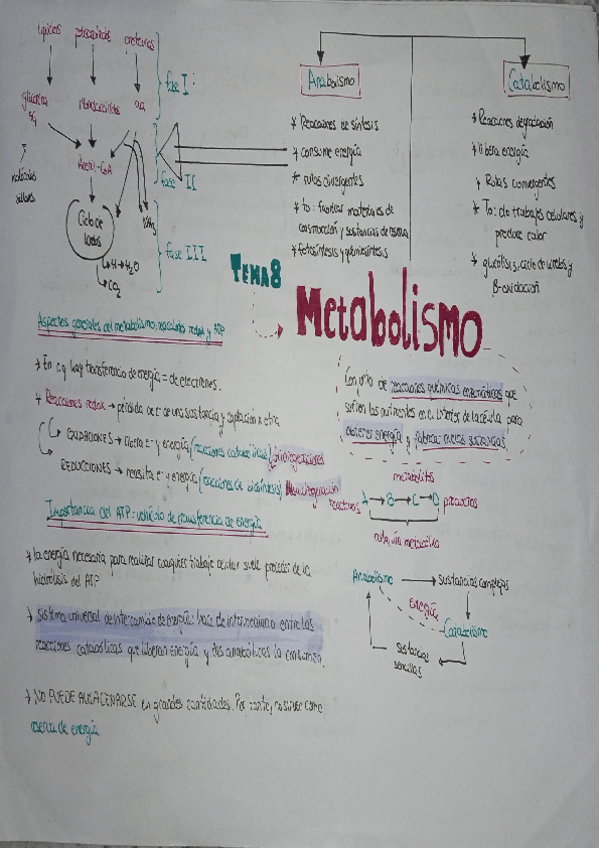 lípidos polisacáridos proteínas
fase I:
glicerina monosacáridos aa
Acetil-CoA
fase II
moléculas
Ciclo de
Krebs
NH3
fase III
H → H2O
CO2
Anabolismo
* Reacciones de síntesis
* consume energía
* rutas divergentes
* to: fabricar materiales de
construcción y sustancias de reserva
* fotosíntesis y quimiosíntesis
Catabolismo
* Reacciones degradación
* libera energía
* Rutas convergentes
* To: de trabajos celulares y
produce calor
* glucólisis, ciclo de Krebs y
β-oxidación
TEMA 8
Metabolismo
Conjunto de reacciones químicas enzimáticas que
sufren los nutrientes en el interior de la célula para
obtener energía y fabricar nuevas sustancias
metabolitos
reactivos A → B → C → D productos
ruta, vía metabólica
Anabolismo → Sustancias complejas
energía
Catabolismo
Sustancias
sencillas
Aspectos generales del metabolismo, reacciones redox y ATP
→ En r.q hay transferencia de energía = de electrones.
* Reacciones redox → pérdida de e- de una sustancia y captación x otra
OXIDACIONES → libera e- y energía (reacciones catabólicas)
REDUCCIONES → necesita e- y energía (reacciones de biosíntesis)
Importancia del ATP: vehículo de transferencia de energía
→ la energía necesaria para realizar cualquier trabajo celular suele proceder de la
hidrólisis del ATP
→ sistema universal de intercambio de energía: hace de intermediario entre las
reacciones catabólicas que liberan energía y las anabólicas la consumen.
→ NO PUEDE ALMACENARSE en grandes cantidades. Por tanto, no sirve como
reserva de energía